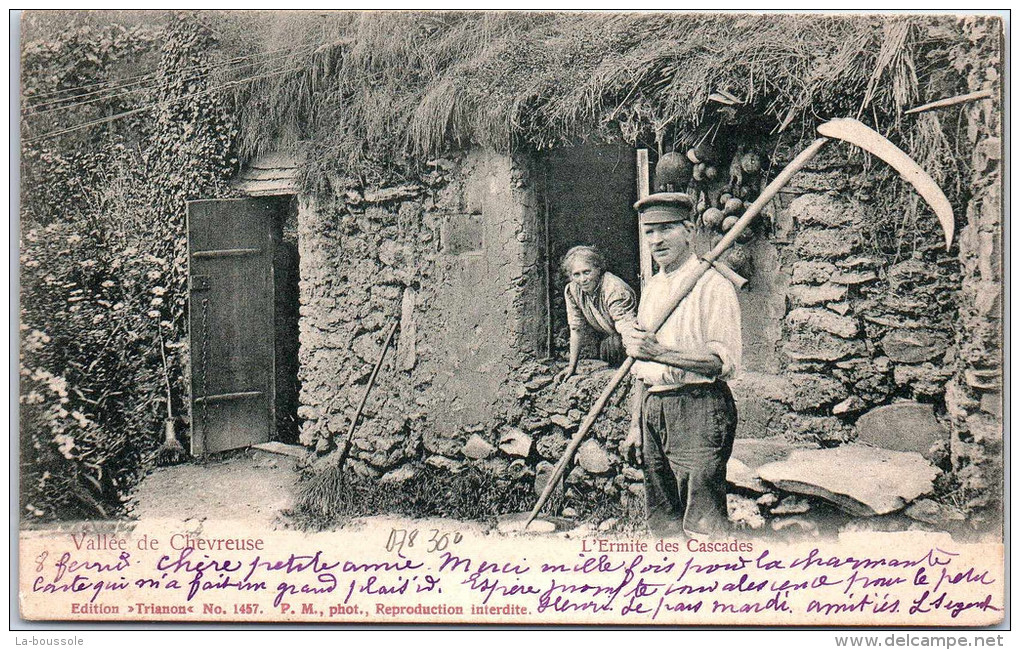 Vallée de Chevreuse
078 30c
L'Ermite des Cascades
8 fevrier Chère petite amie. Merci mille fois pour la charmante
carte qui m'a fait un grand plaisir. Espère prompte convalescence pour le petit
Henri. Je pars mardi. amitiés.
Edition »Trianon« No. 1457. P. M., phot., Reproduction interdite.
La-boussole
www.delcampe.net